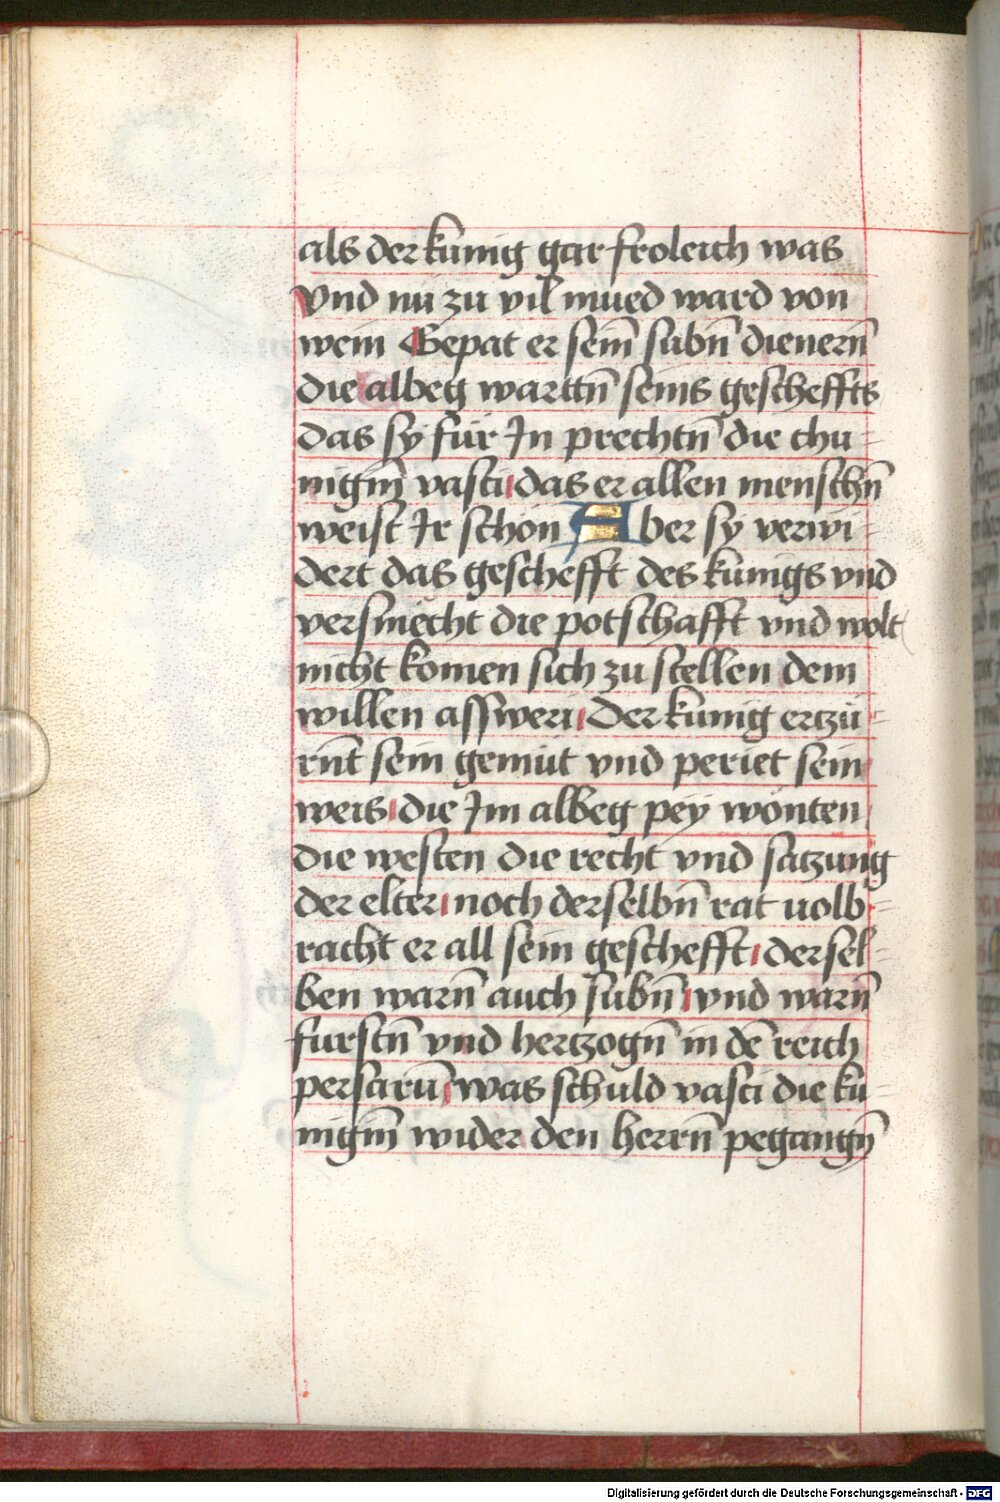 als der kunig gar froleich was
Vnd nu zu vil mued ward von
wein Gepat er sein̄ subn̄ dienern̄
die albeg wartn̄ seins gescheffts
das sy fur Jn prechtn̄ die chu⸗
nigin̄ vasti das er allen menschn̄
weist Jr schon Aber sy verwi⸗
dert das geschefft des kunigs vnd
versmecht die potschafft vnd wolt
nicht komen sich zu stellen dem
willen assweri Der kunig ertzu⸗
rn̄t sein gemut vnd periet sein
weis die Jm albeg pey wonten
die westen die recht vnd satzung
der elter noch derselbn̄ rat uolb⸗
racht er all sein geschefft dersel⸗
ben warn̄ auch subn̄ vnd warn̄
furstn̄ vnd hertzogn̄ in dē reich
persarū was schuld vasti die ku⸗
nigin̄ wider den herrn̄ pegangn̄
Digitalisierung gefördert durch die Deutsche Forschungsgemeinschaft - DFG